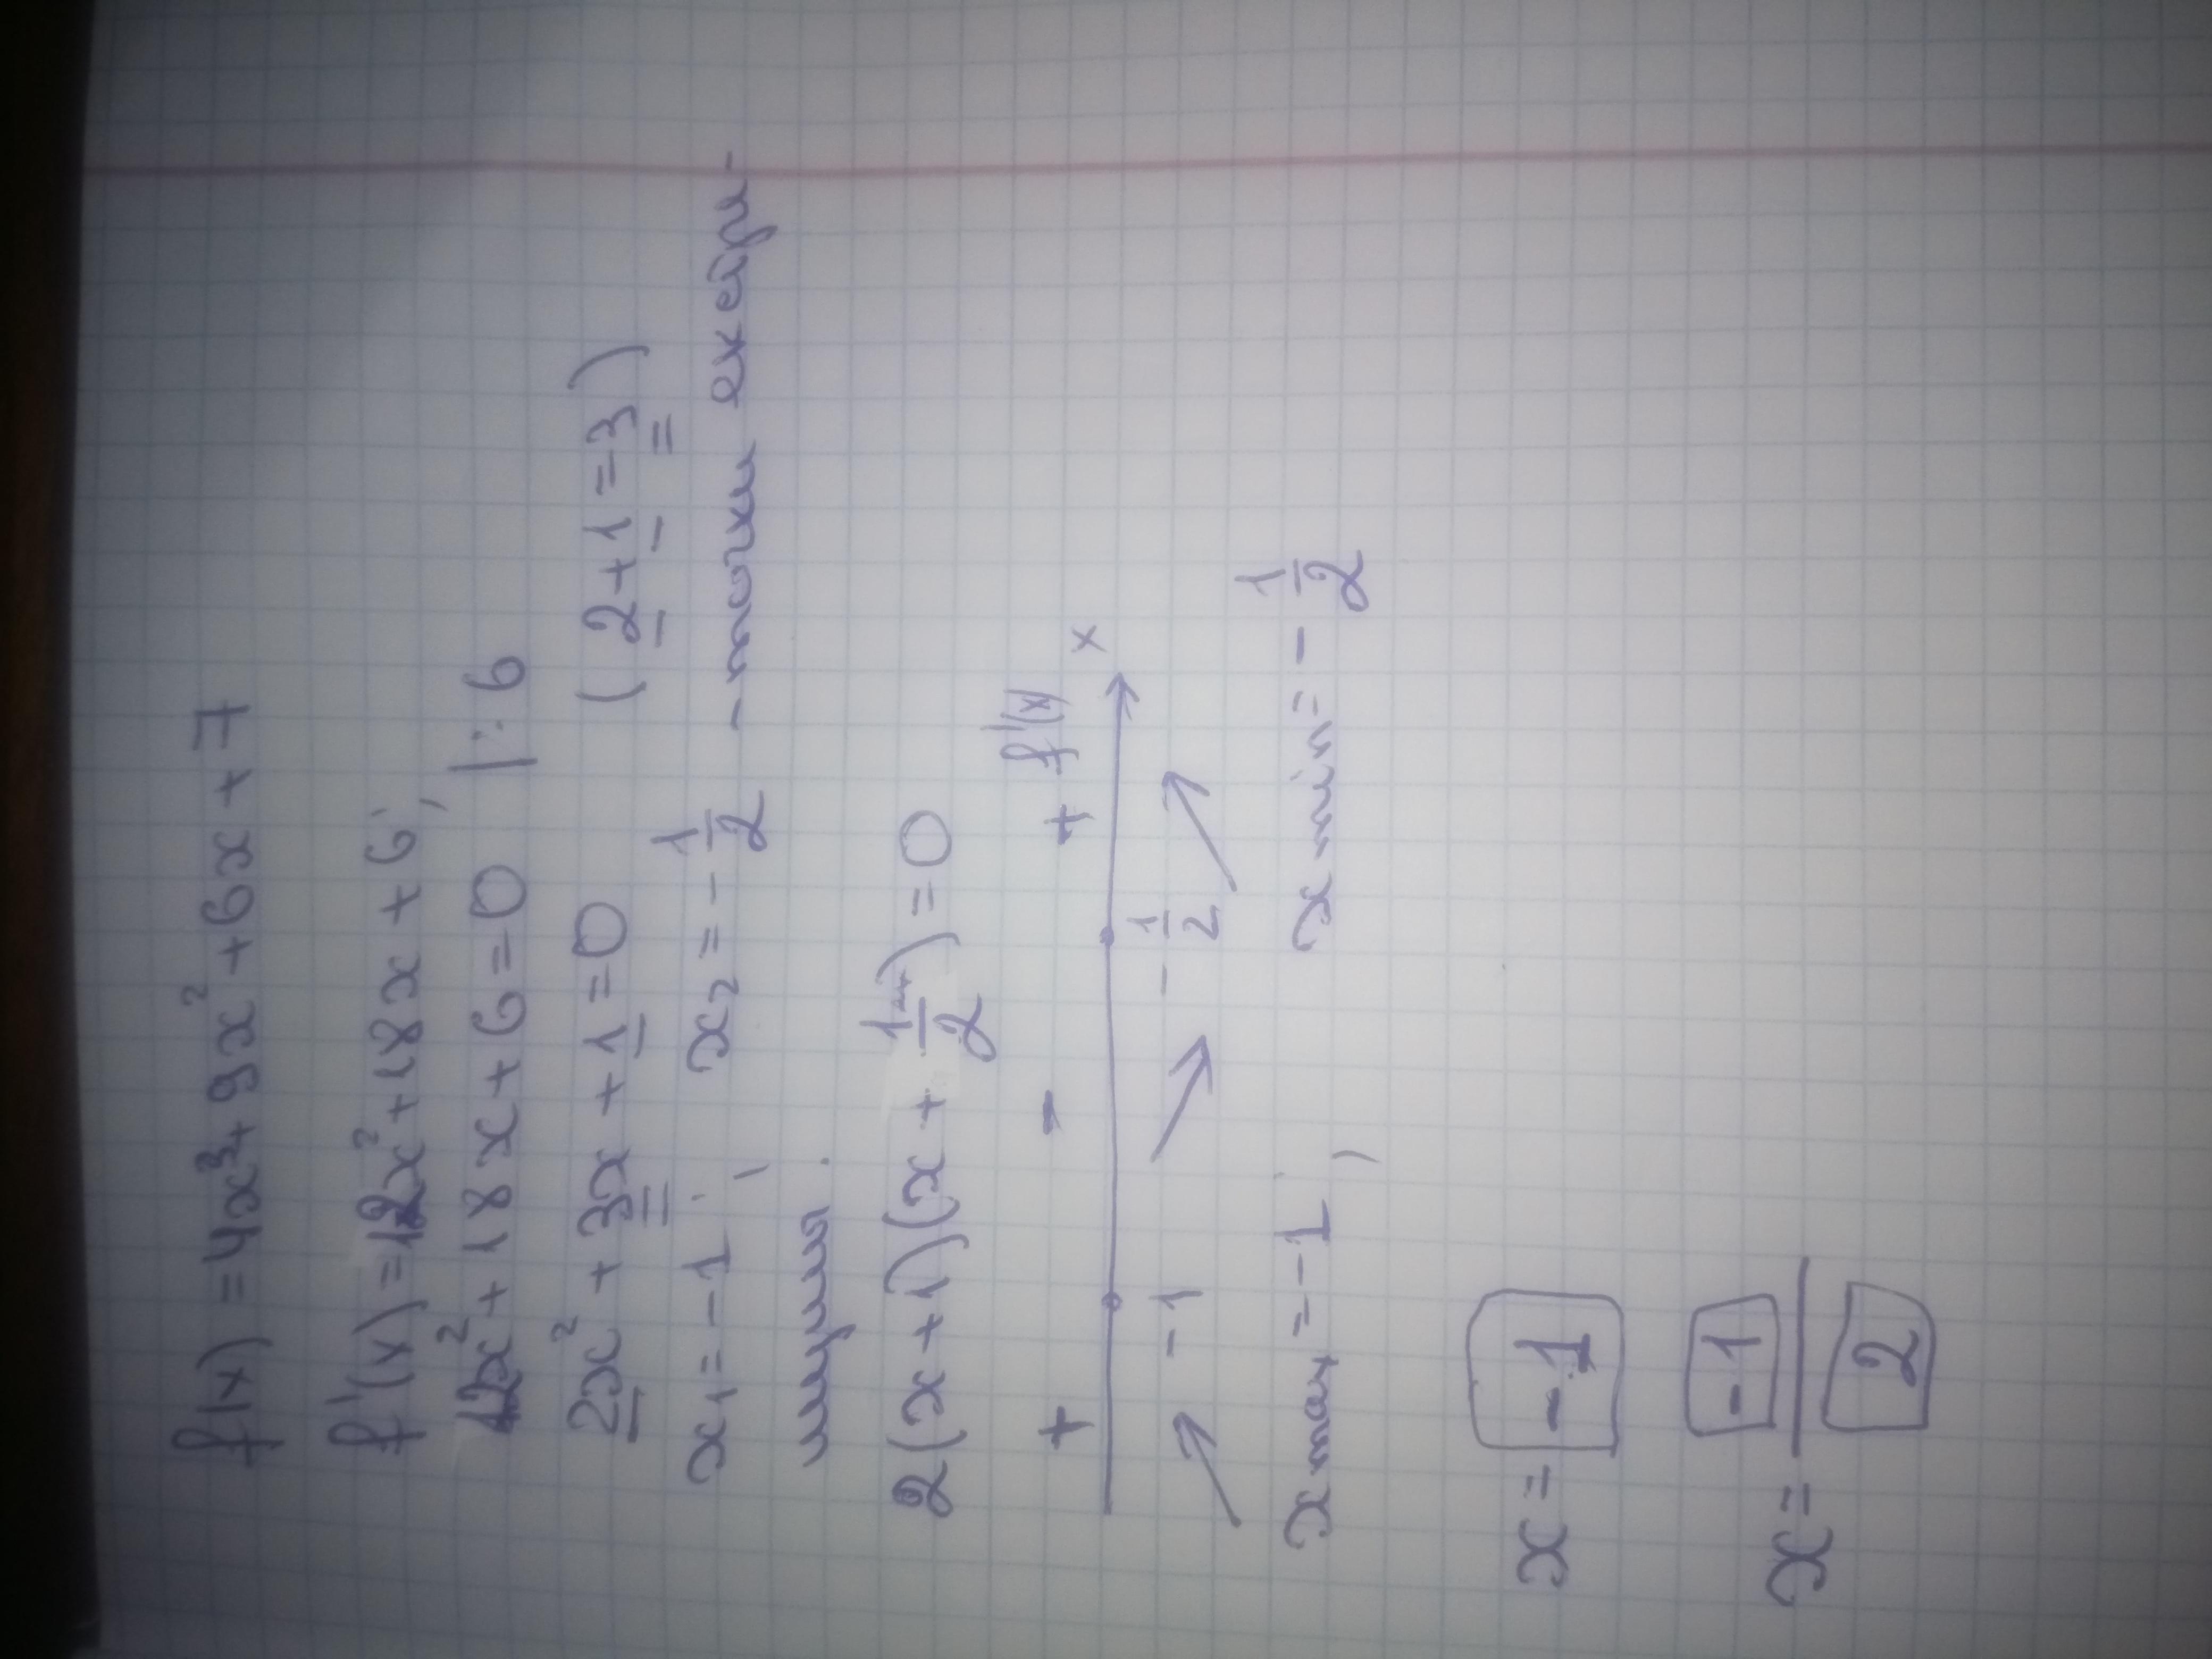 f(x) = 4x³ + 9x² + 6x + 7
f'(x) = 12x² + 18x + 6;
12x² + 18x + 6 = 0 | : 6
2x² + 3x + 1 = 0 (2 + 1 = 3)
x₁ = -1; x₂ = -1/2 - точки
2(x + 1)(x + 1/2) = 0
+ - + f'(x)
x
-1 -1/2
x max = -1; x min = -1/2
x = -1
x = -1/2